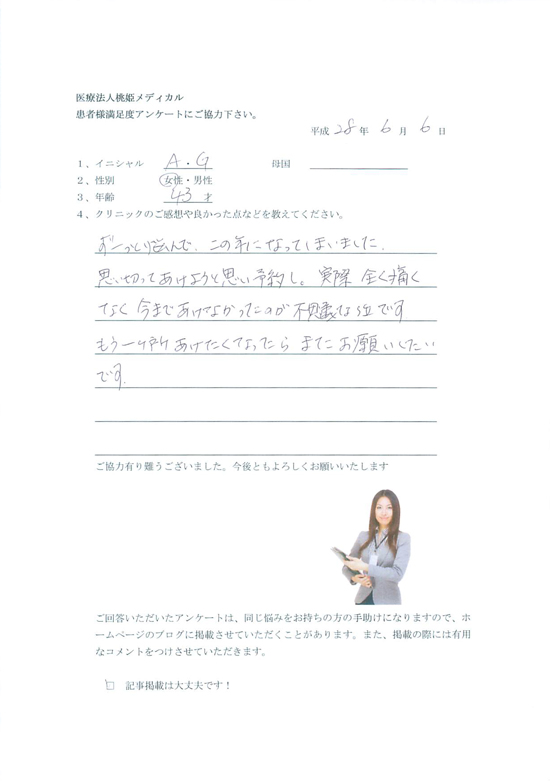 医療法人桃姫メディカル
患者様満足度アンケートにご協力下さい。
平成 28 年 6 月 6 日
1、イニシャル A・G 母国
2、性別 女性・男性
3、年齢 43 才
4、クリニックのご感想や良かった点などを教えてください。
ずーっと悩んで、この年になってしまいました。
思い切ってあけようと思い予約し。実際 全く痛く
なく 今まであけてなかったのが 不思議な位です
もう一ヶ所 あけたくなったら またお願いしたい
です。
ご協力有り難うございました。今後ともよろしくお願いいたします
ご回答いただいたアンケートは、同じ悩みをお持ちの方の手助けになりますので、ホ
ームページのブログに掲載させていただくことがあります。また、掲載の際には有用
なコメントをつけさせていただきます。
□ 記事掲載は大丈夫です！